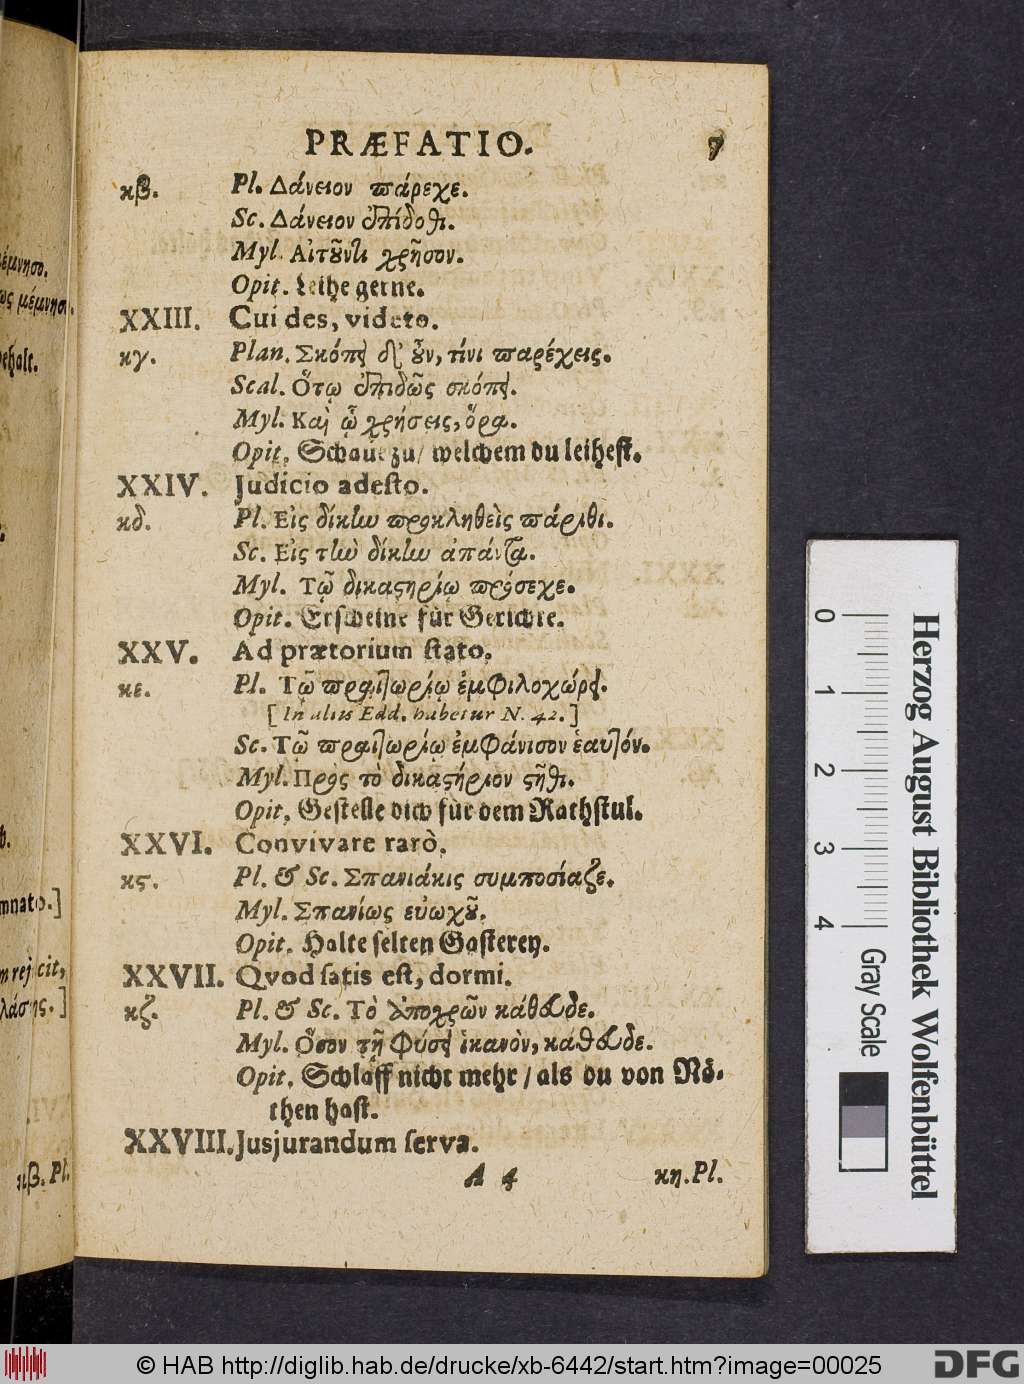 PRÆFATIO. 7
κβ. Pl. Δάνειον πάρεχε.
Sc. Δάνειον ἐπίδοθι.
Myl. Αἰτοῦντι χρῆσον.
Opit. Leihe gerne.
XXIII. Cui des, videto.
κγ. Plan. Σκόπει δ' οὖν, τίνι παρέχεις.
Scal. Ὅτῳ ἐπιδῶς σκόπει.
Myl. Καὶ ᾧ χρήσεις, ὅρα.
Opit. Schaue zu / welchem du leihest.
XXIV. Judicio adesto.
κδ. Pl. Εἰς δίκην προκληθεὶς πάριθι.
Sc. Εἰς τὴν δίκην ἀπάντα.
Myl. Τῷ δικαστηρίῳ πρόσεχε.
Opit. Erscheine für Gerichte.
XXV. Ad prætorium stato.
κε. Pl. Τῷ πραιτωρίῳ ἐμφιλοχώρει.
[ In aliis Edd. habetur N. 42. ]
Sc. Τῷ πραιτωρίῳ ἐμφάνισον ἑαυτόν.
Myl. Πρὸς τὸ δικαστήριον στῆθι.
Opit. Gestelle dich für dem Rathstul.
XXVI. Convivare rarò.
κϛ. Pl. & Sc. Σπανιάκις συμποσίαζε.
Myl. Σπανίως εὐωχοῦ.
Opit. Halte selten Gasterey.
XXVII. Qvod satis est, dormi.
κζ. Pl. & Sc. Τὸ ἀποχρῶν κάθευδε.
Myl. Ὅσον τῇ φύσει ἱκανὸν, κάθευδε.
Opit. Schlaff nicht mehr / als du von Nö-
then hast.
XXVIII. Jusjurandum serva.
A 4 κη. Pl.
μέμνησο.
ως μέμνησο.
behalt.
mnato.]
m rejicit,
κβ. Pl.
0 1 2 3 4
Gray Scale
Herzog August Bibliothek Wolfenbüttel
© HAB http://diglib.hab.de/drucke/xb-6442/start.htm?image=00025
DFG